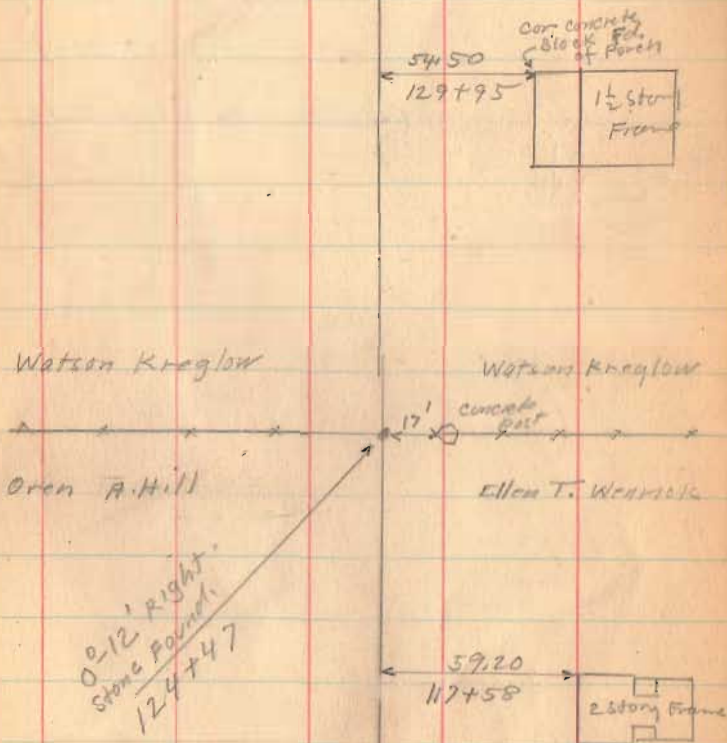 Cor concrete
Block Fd.
of Porch
54.50
129+95
1½ Story
Frame
Watson Kreglow
Watson Kreglow
17'
concrete
post
Oren A. Hill
Ellen T. Wenrick
0°-12' Right
Stone Found.
124+47
59.20
117+58
2 Story Frame